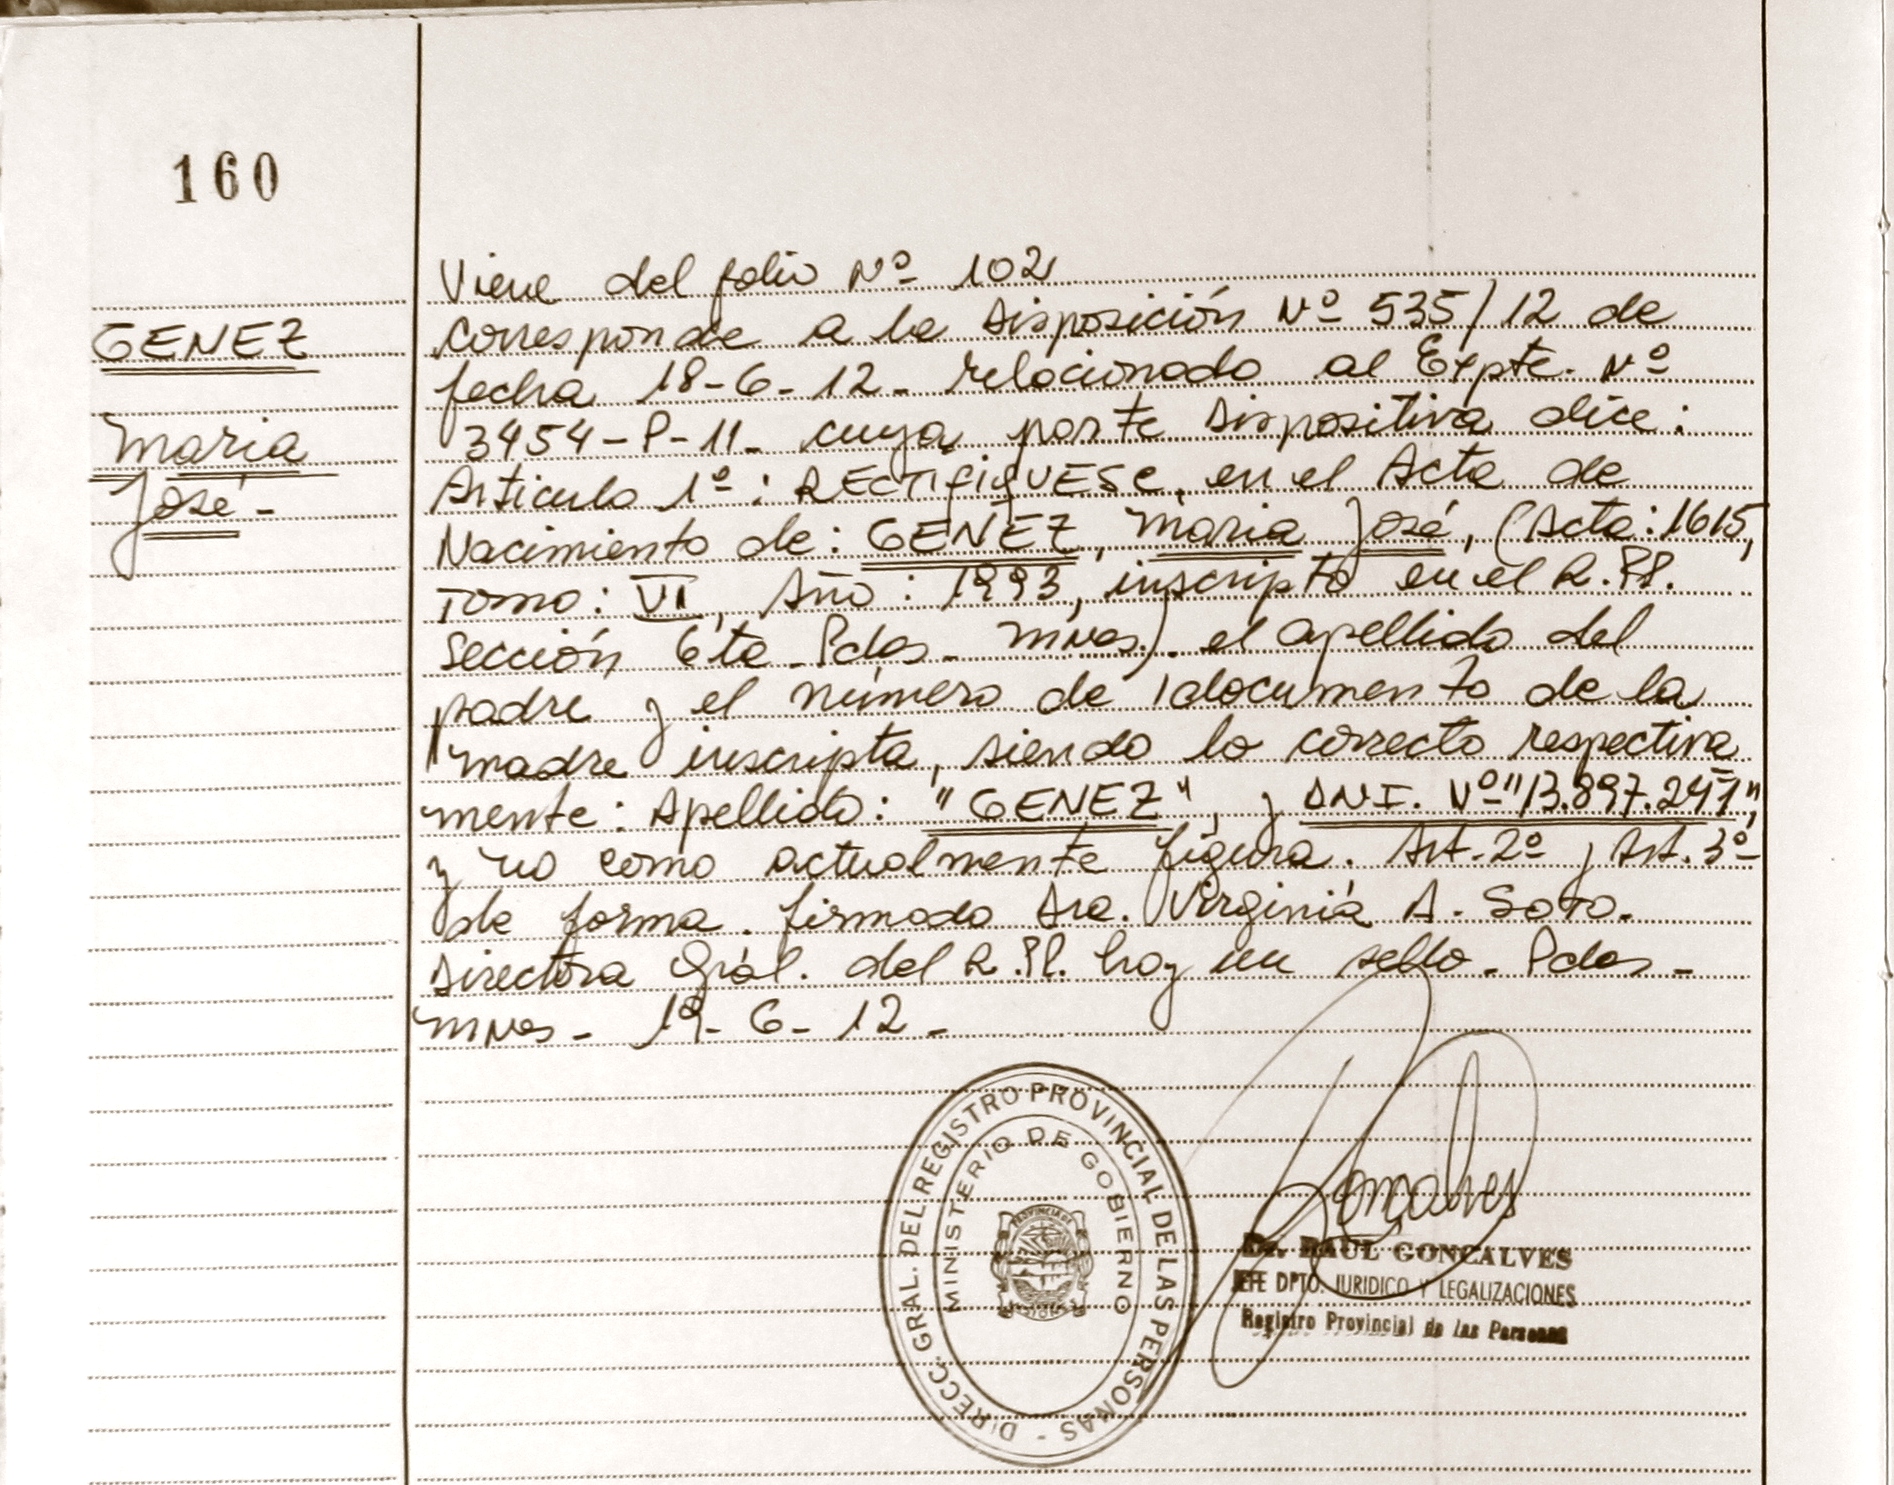 160
GENEZ
Maria
José -
Viene del folio Nº 102
Corresponde a la Disposición Nº 535/12 de
fecha 18-6-12- relacionado al Expte. Nº
3454-P-11- cuya parte Dispositiva dice:
Articulo 1º: RECTIFIQUESE, en el Acta de
Nacimiento de: GENEZ, Maria José, (Acta: 1615,
Tomo: VI, Año: 1993, inscripto en el R.PP.
Sección 6ta - Pdas - Mnes). el apellido del
padre y el número de documento de la
madre inscripta, siendo lo correcto respectiva
mente: Apellido: "GENEZ", y DNI. Nº "13.897.241",
y no como actualmente figura. Art. 2º y Art. 3º
de forma. firmado Dra. Virginia A. Soto.
Directora Gral. del R.PP. hay un sello - Pdas -
Mnes - 19-6-12-
DIRECC. GRAL. DEL REGISTRO PROVINCIAL DE LAS PERSONAS -
MINISTERIO DE GOBIERNO
PROVINCIA DE
MISIONES
Gonçalves
Dr. RAUL GONCALVES
JEFE DPTO. JURIDICO Y LEGALIZACIONES
Registro Provincial de las Personas